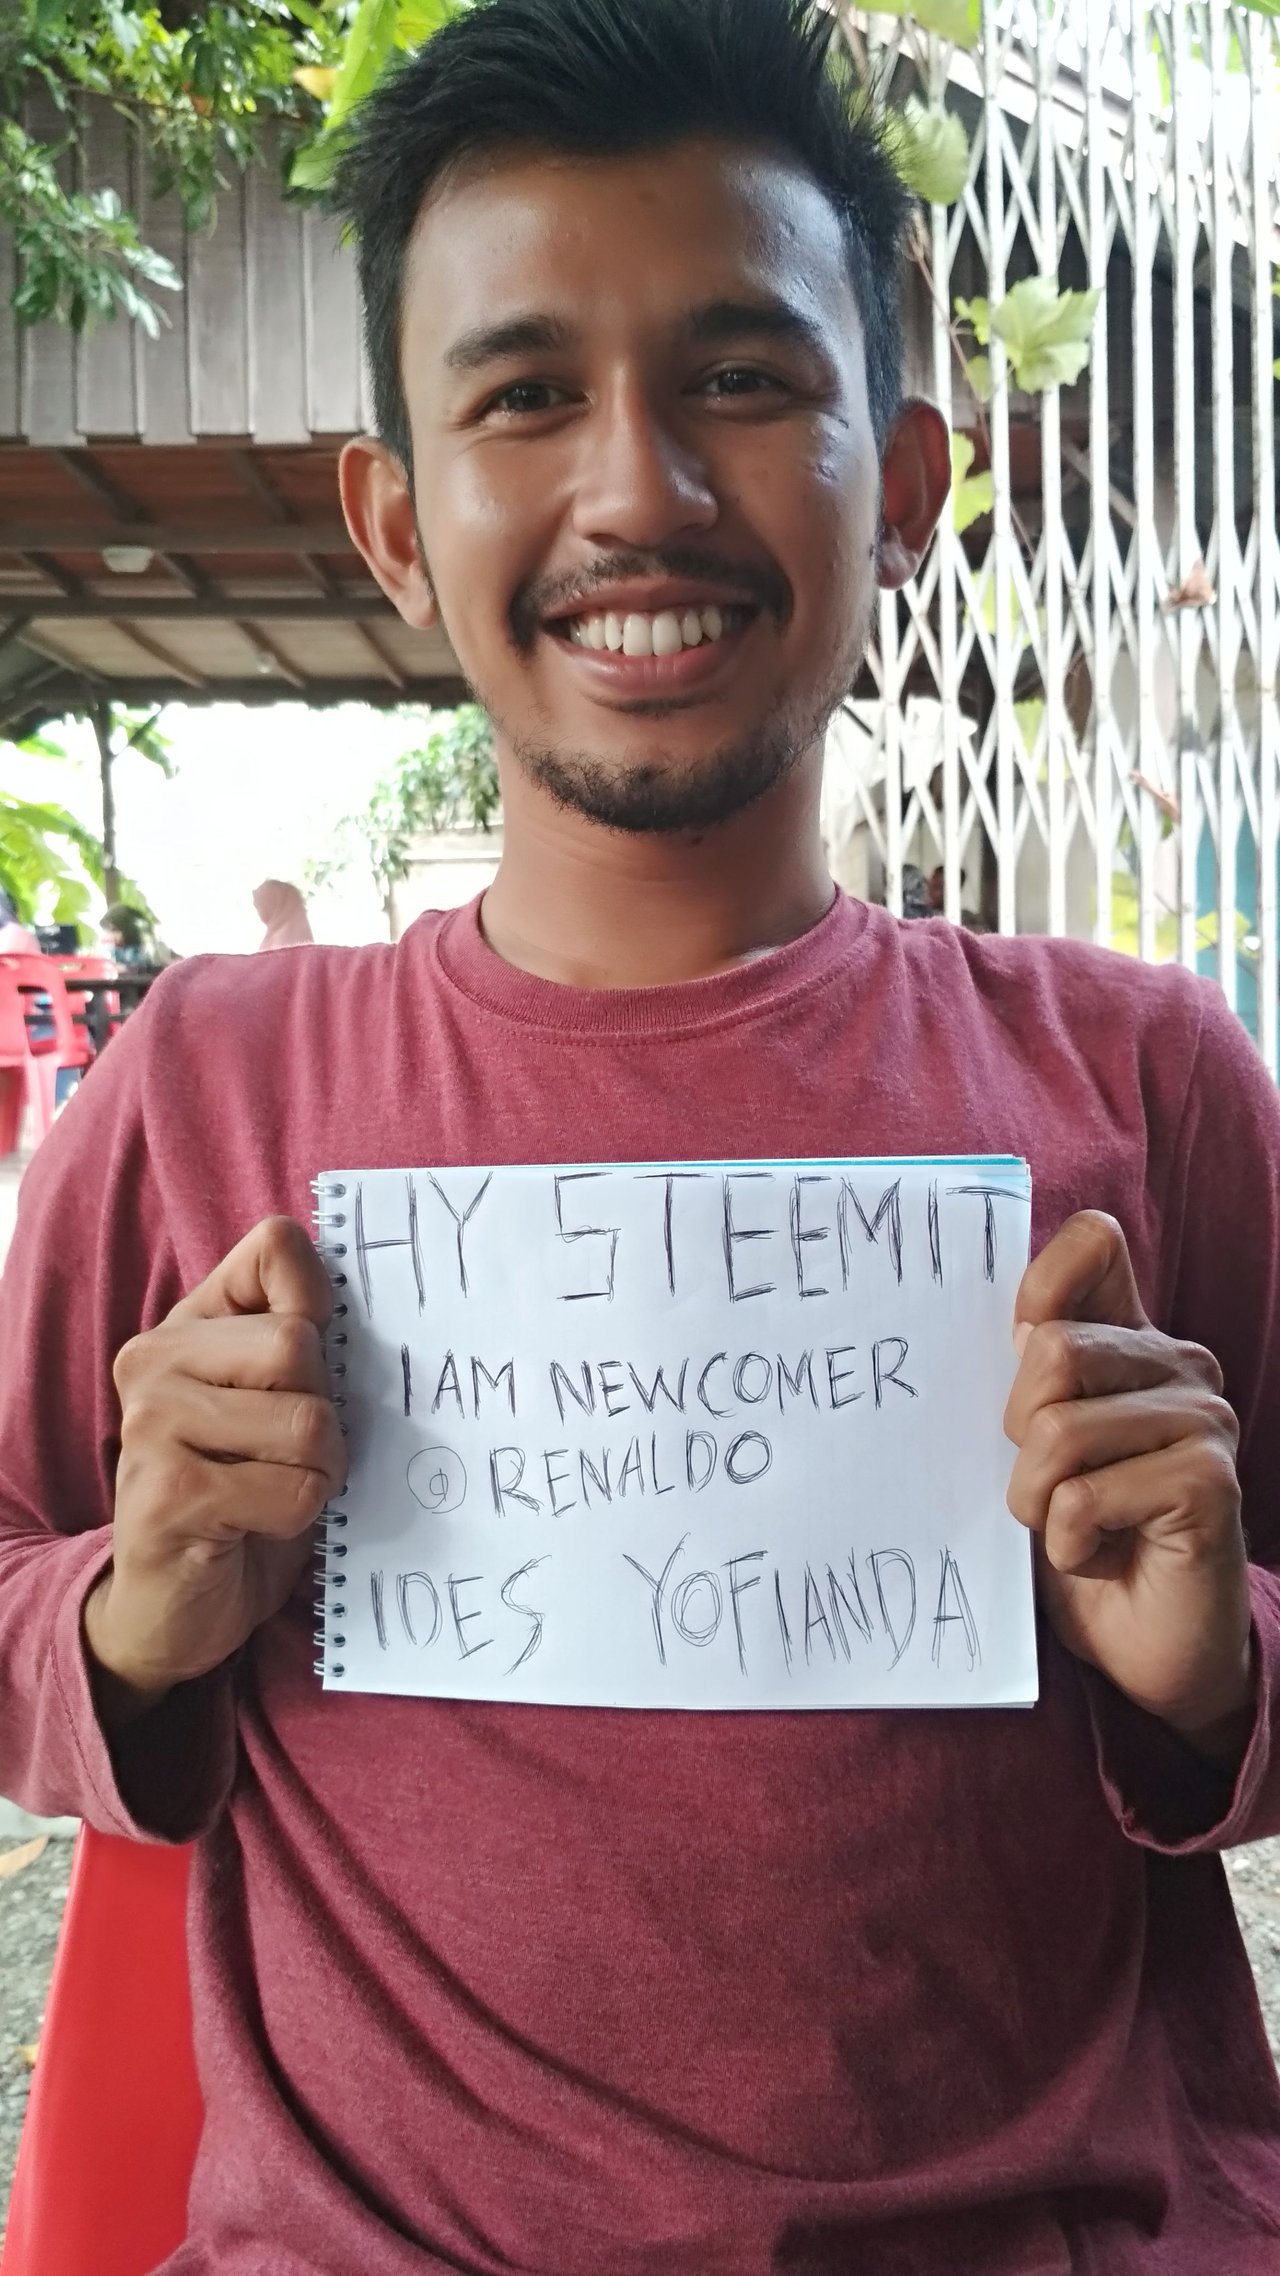 HY STEEMIT
I AM NEWCOMER
@RENALDO
IDES YOFIANDA